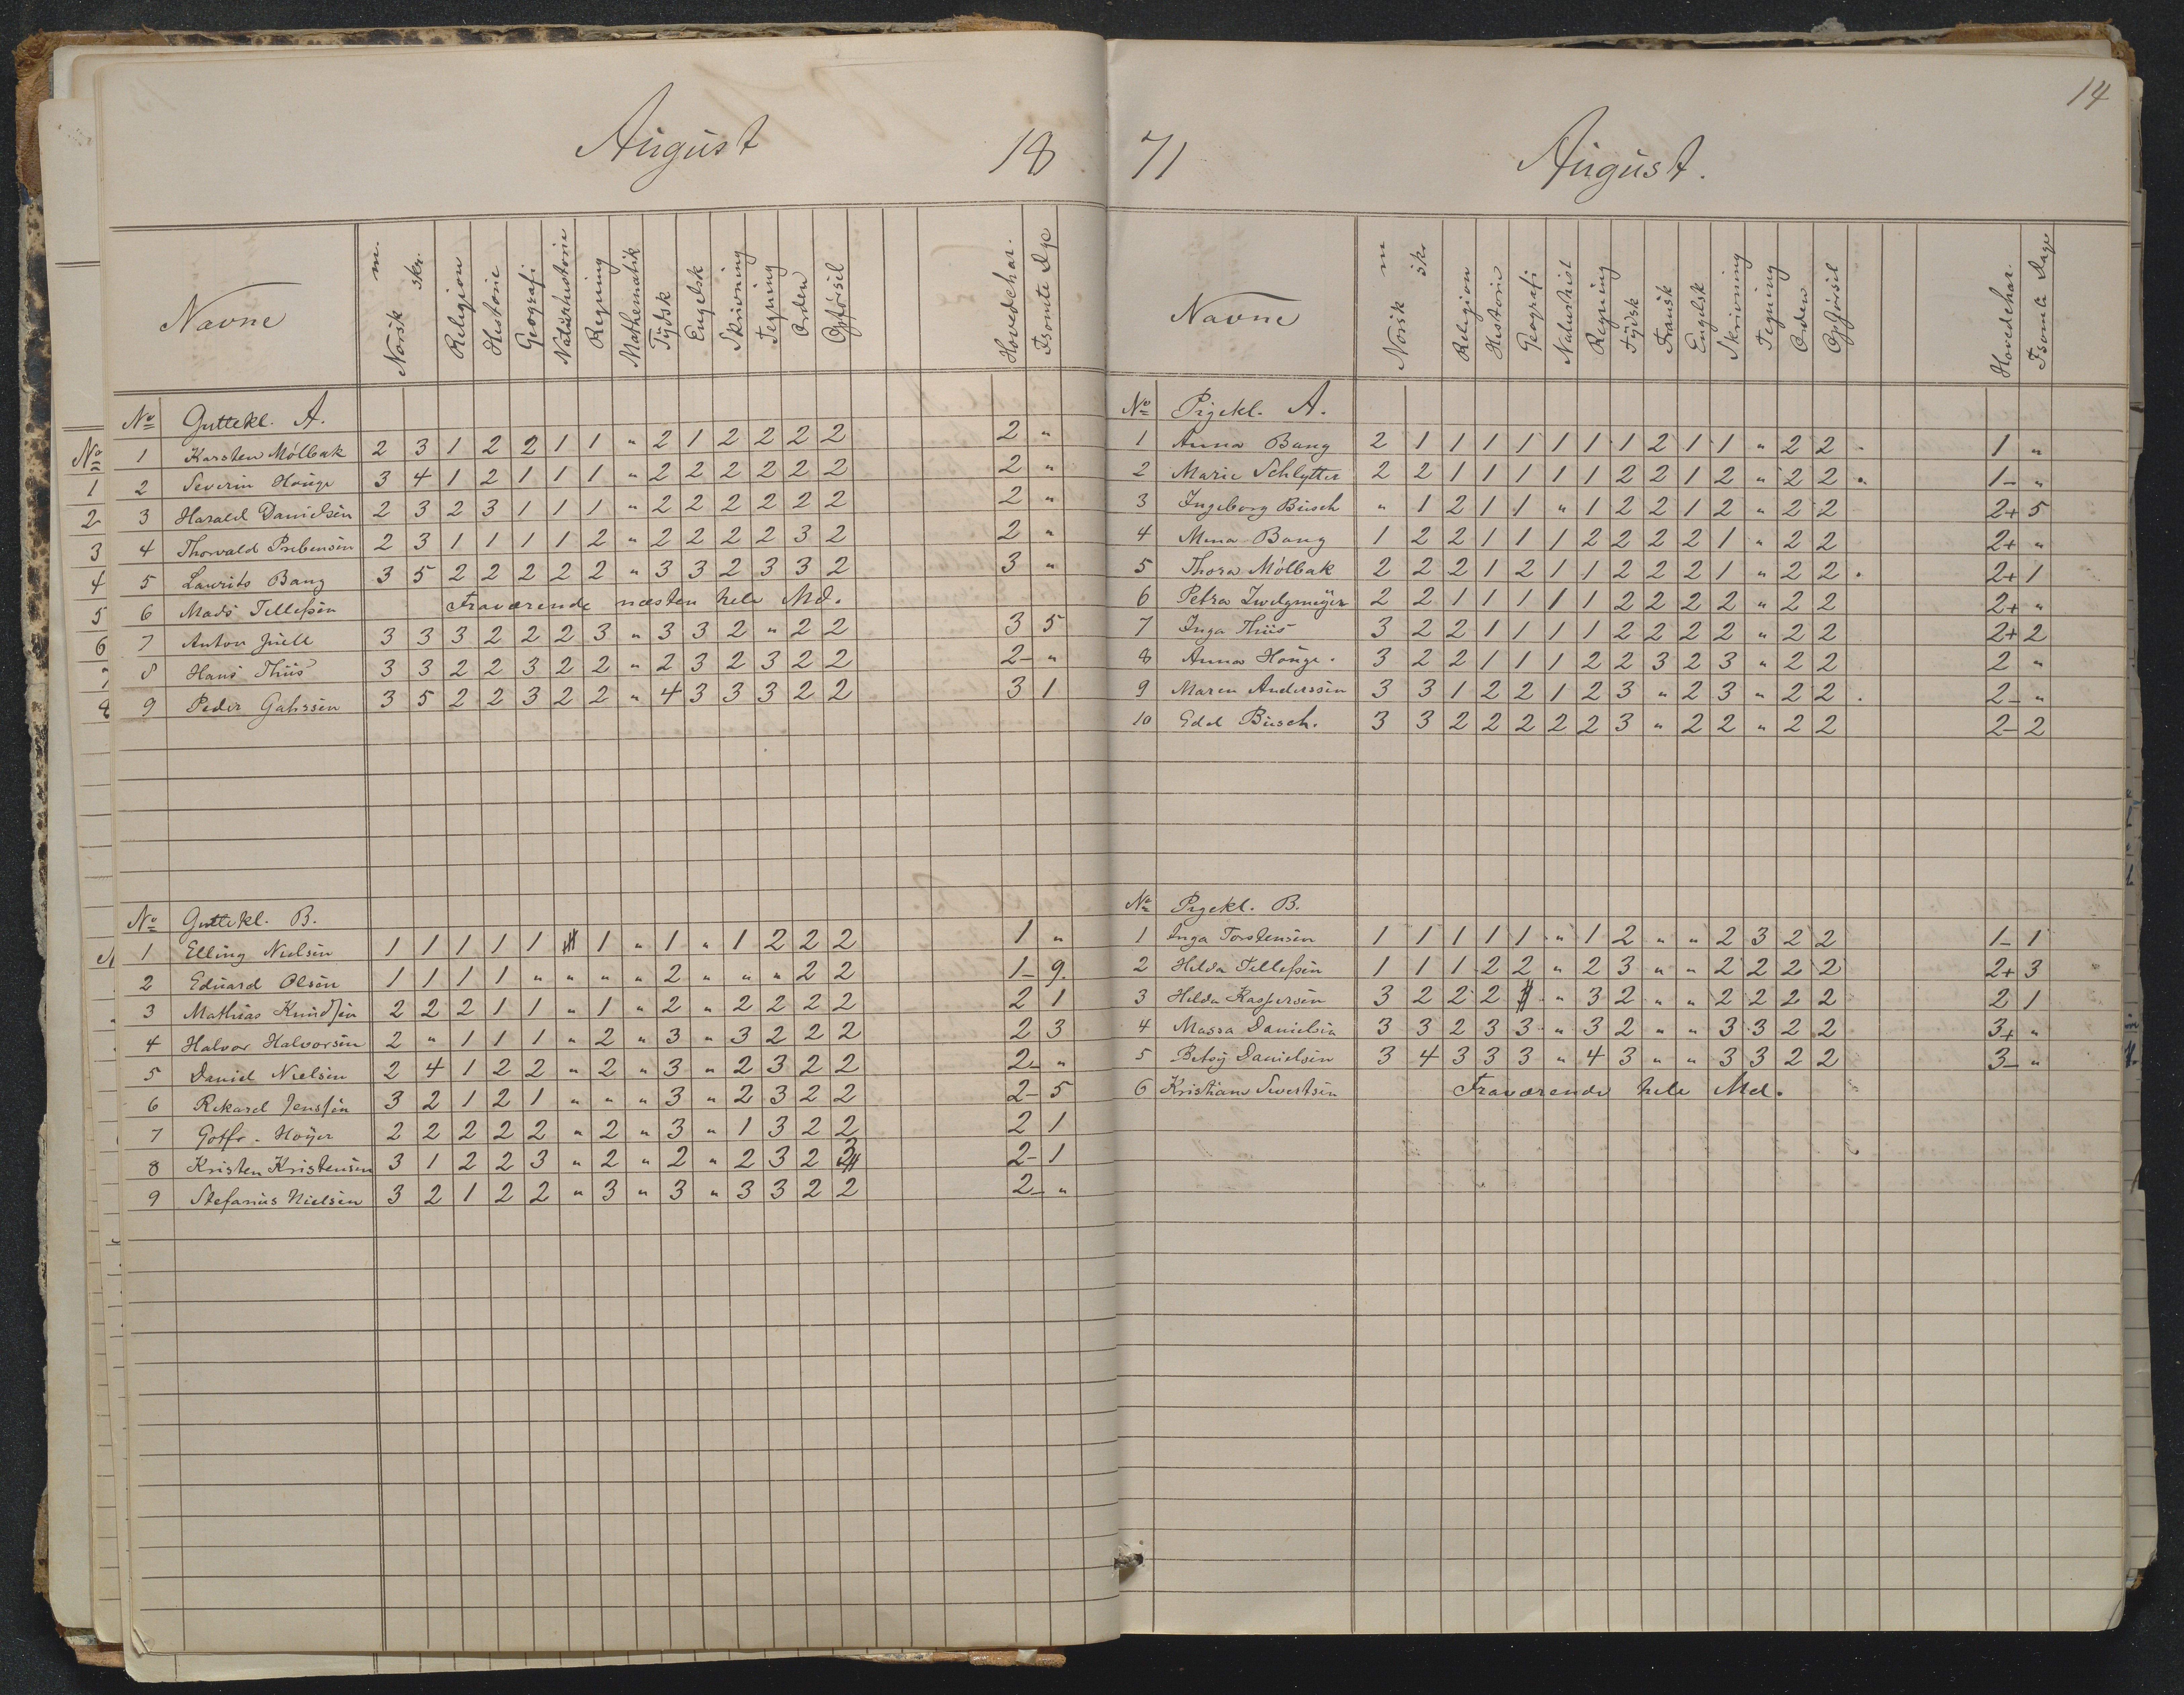 August 18
Navne Norsk m. skr. Religion Historie Geografi Naturhistorie Regning Mathematik Tydsk Engelsk Skrivning Tegning Orden Opførsel Hovedchar. Forsømte Dge
No Guttekl. A.
1 Karsten Mølbak 2 3 1 2 2 1 1 " 2 1 2 2 2 2 2 "
2 Severin Houge 3 4 1 2 1 1 1 " 2 2 2 2 2 2 2 "
3 Harald Danielsen 2 3 2 3 1 1 1 " 2 2 2 2 2 2 2 "
4 Thorvald Prebensen 2 3 1 1 1 1 2 " 2 2 2 2 3 2 2 "
5 Laurits Bang 3 5 2 2 2 2 2 " 3 3 2 3 3 2 3 "
6 Mads Tellefsen Fraværende næsten hele Md.
7 Anton Juell 3 3 3 2 2 2 3 " 3 3 2 " 2 2 3 5
8 Hans Thiis 3 3 2 2 3 2 2 " 2 3 2 3 2 2 2- "
9 Peder 3 5 2 2 3 2 2 " 4 3 3 3 2 2 3 1
No Guttekl. B.
1 Elling Nielsen 1 1 1 1 1 1 " 1 " 1 2 2 2 1 "
2 Eduard Olsen 1 1 1 1 " " " " 2 " " " 2 2 1- 9.
3 Mathias Knudsen 2 2 2 1 1 " 1 " 2 " 2 2 2 2 2 1
4 Halvor Halvorsen 2 " 1 1 1 " 2 " 3 " 3 2 2 2 2 3
5 Daniel Nielsen 2 4 1 2 2 " 2 " 3 " 2 3 2 2 2- "
6 Rikard Jensen 3 2 1 2 1 " " " 3 " 2 3 2 2 2- 5
7 Gotfr. Høyer 2 2 2 2 2 " 2 " 3 " 1 3 2 2 2 1
8 Kristen Kristensen 3 1 2 2 3 " 2 " 2 " 2 3 2 3 2- 1
9 Stefanus Nielsen 3 2 1 2 2 " 3 " 3 " 3 3 2 2 2- "
14
71 August.
Navne Norsk m skr Religion Historie Geografi Naturhist Regning Tydsk Fransk Engelsk Skrivning Tegning Orden Opførsel Hovedchar. Forsømte Dage
No Pigekl. A.
1 Anna Bang 2 1 1 1 1 1 1 1 2 1 1 " 2 2 1 "
2 Marie Schlytter 2 2 1 1 1 1 1 2 2 1 2 " 2 2 1- "
3 Ingeborg Busch " 1 2 1 1 " 1 2 2 1 2 " 2 2 2+ 5
4 Mina Bang 1 2 2 1 1 1 2 2 2 2 1 " 2 2 2+ "
5 Thora Mølbak 2 2 2 1 2 1 1 2 2 2 1 " 2 2 2+ 1
6 Petra Zwilgmeyer 2 2 1 1 1 1 1 2 2 2 2 " 2 2 2+ "
7 Inga Thiis 3 2 2 1 1 1 1 2 2 2 2 " 2 2 2+ 2
8 Anna Houge. 3 2 2 1 1 1 2 2 3 2 3 " 2 2 2 "
9 Maren Anderssen 3 3 1 2 2 1 2 3 " 2 3 " 2 2 2- "
10 Edel Busch. 3 3 2 2 2 2 2 3 " 2 2 " 2 2 2- 2
No Pigekl. B.
1 Inga Torstensen 1 1 1 1 1 " 1 2 " " 2 3 2 2 1- 1
2 Hilda Tellefsen 1 1 1 2 2 " 2 3 " " 2 2 2 2 2+ 3
3 Hilda Kaspersen 3 2 2 2 " 3 2 " " 2 2 2 2 2 1
4 Massa Danielsen 3 3 2 3 3 " 3 2 " " 3 3 2 2 3+ "
5 Betsy Danielsen 3 4 3 3 3 " 4 3 " " 3 3 2 2 3- "
6 Kristiane Sivertsen Fraværende hele Md.